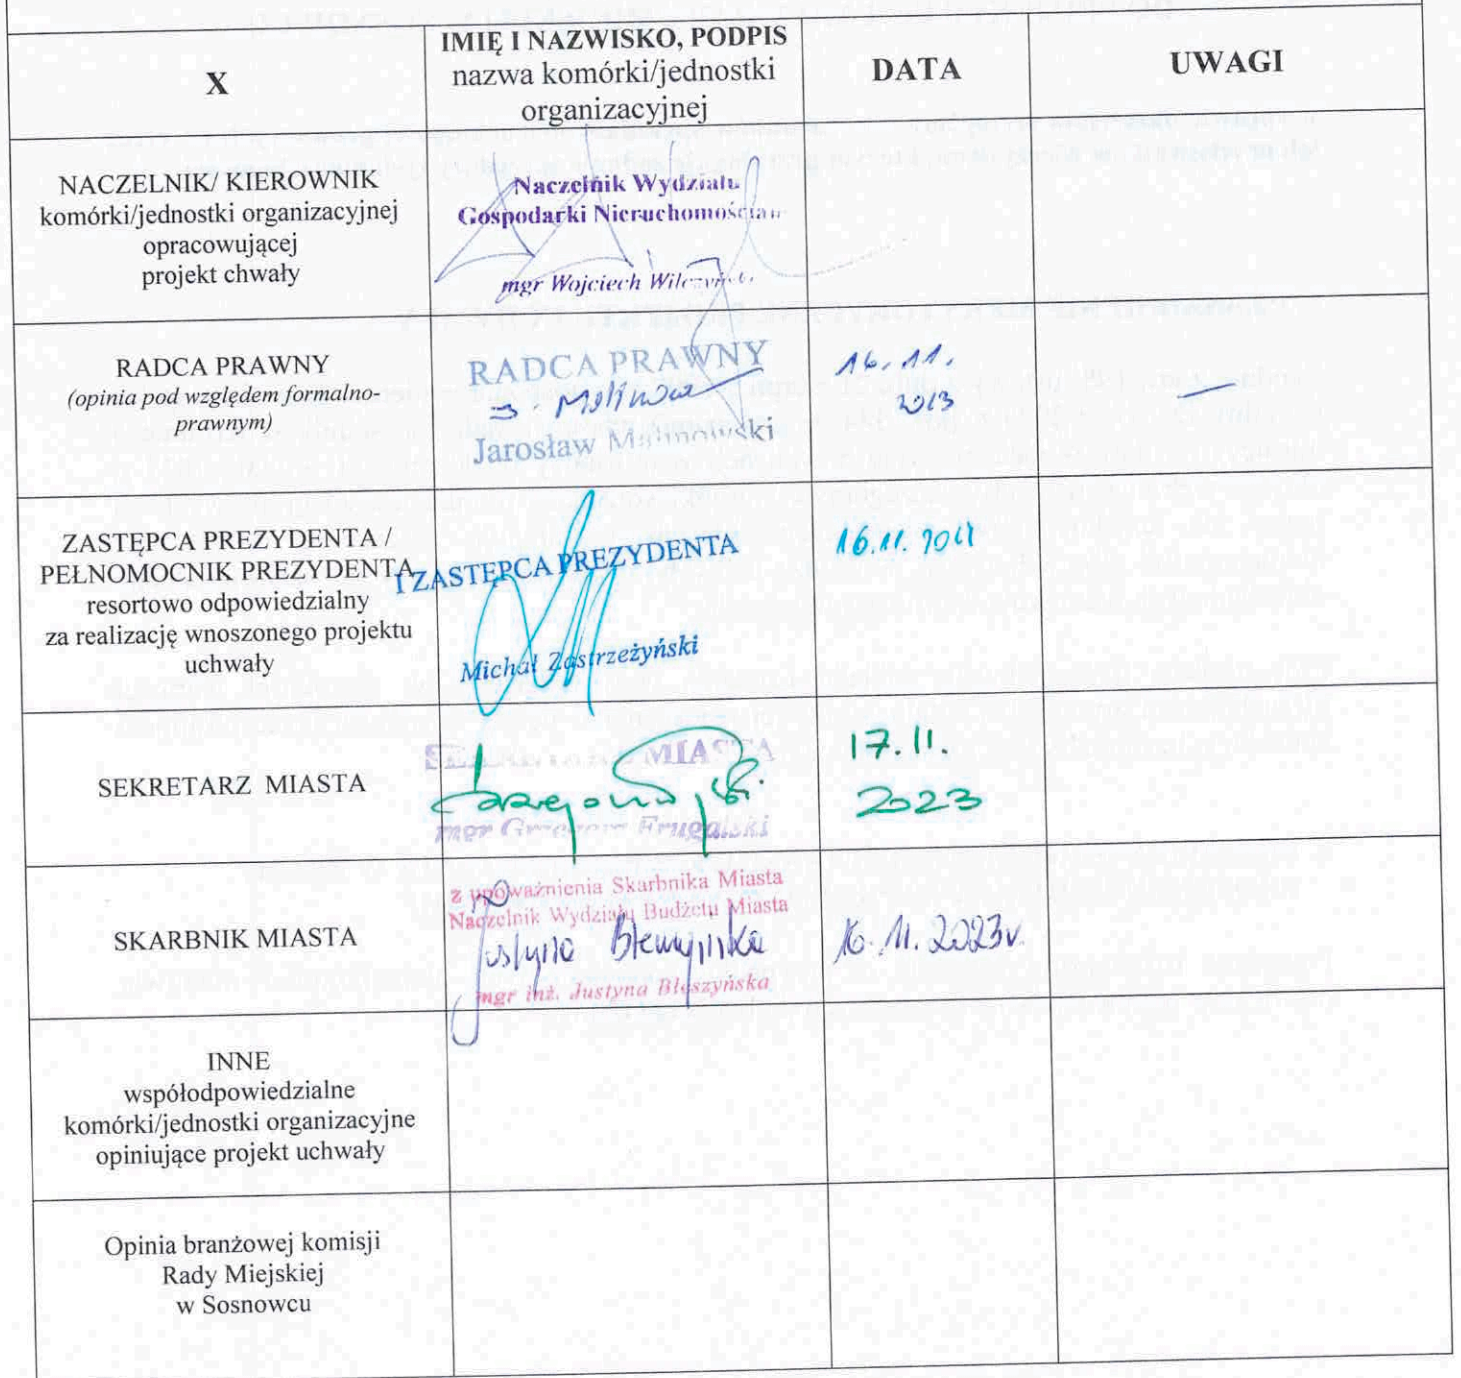 X
IMIĘ I NAZWISKO, PODPIS
nazwa komórki/jednostki
organizacyjnej
DATA
UWAGI
NACZELNIK/ KIEROWNIK
komórki/jednostki organizacyjnej
opracowującej
projekt chwały
Naczelnik Wydziału
Gospodarki Nieruchomościami
mgr Wojciech
RADCA PRAWNY
(opinia pod względem formalno-
prawnym)
RADCA PRAWNY
J. Malinow
Jarosław Malinowski
16.11.
2023
—
ZASTĘPCA PREZYDENTA /
PEŁNOMOCNIK PREZYDENTA
resortowo odpowiedzialny
za realizację wnoszonego projektu
uchwały
I ZASTĘPCA PREZYDENTA
Michał Zastrzeżyński
16.11.
SEKRETARZ MIASTA
SEKRETARZ MIASTA
mgr Grzegorz Frugalski
17.11.
2023
SKARBNIK MIASTA
z upoważnienia Skarbnika Miasta
Naczelnik Wydziału Budżetu Miasta
Justyna Błeszyńska
mgr inż. Justyna Błeszyńska
16.11.2023r.
INNE
współodpowiedzialne
komórki/jednostki organizacyjne
opiniujące projekt uchwały
Opinia branżowej komisji
Rady Miejskiej
w Sosnowcu